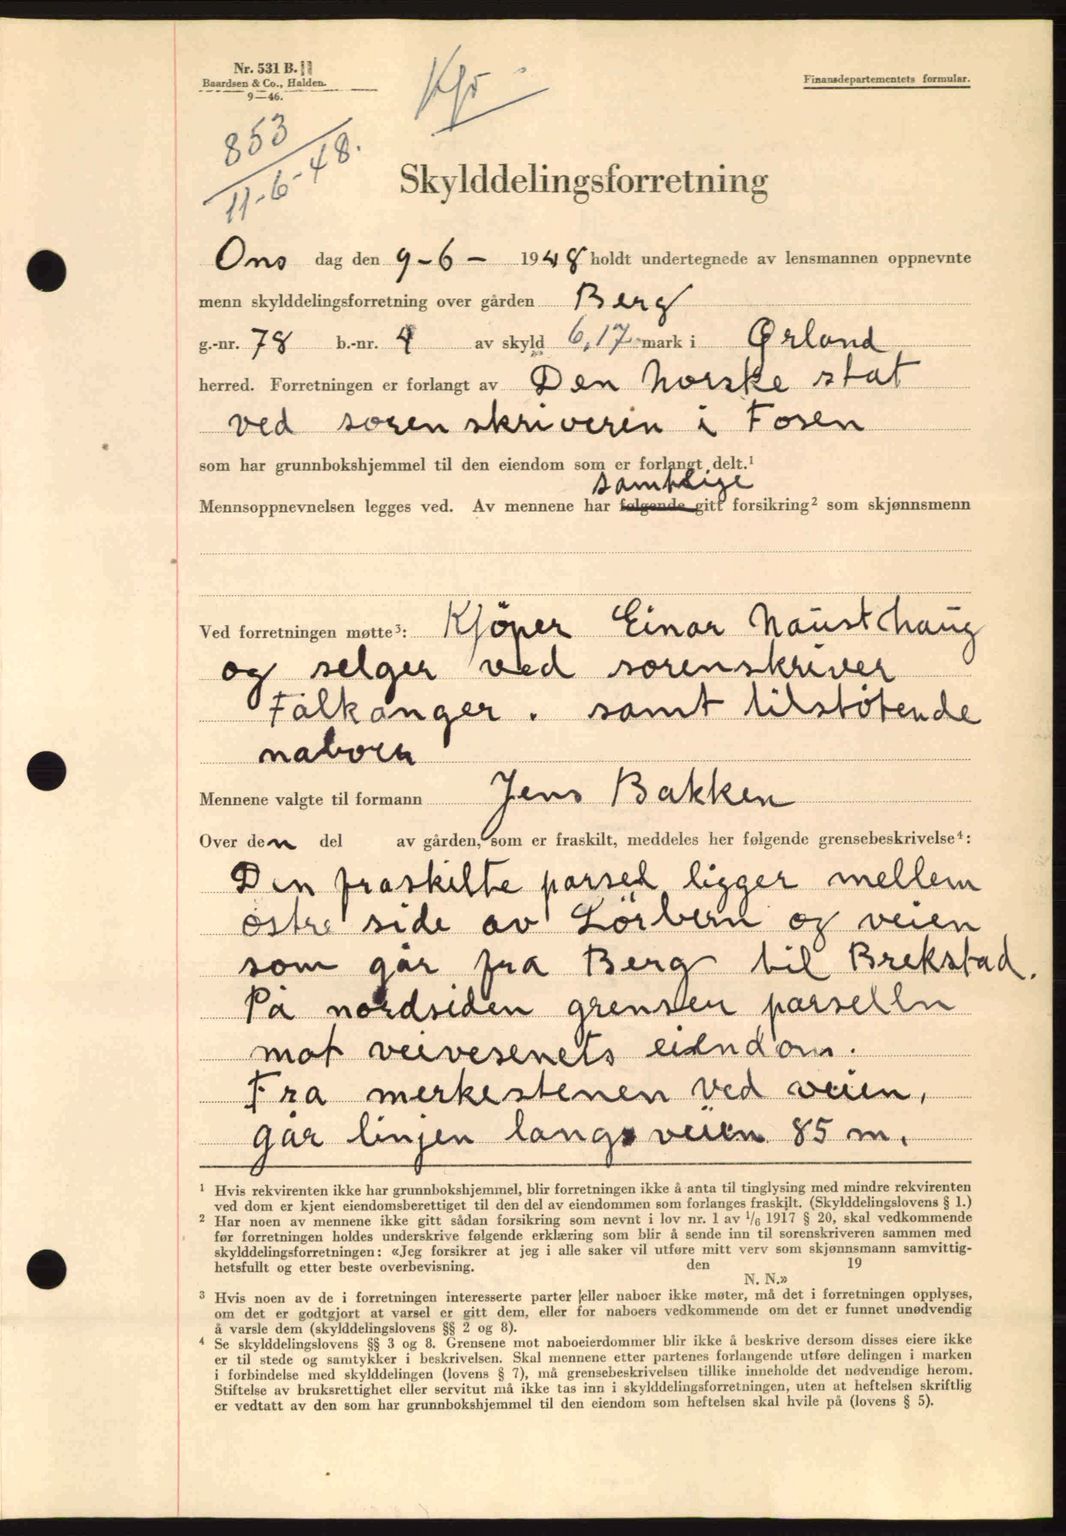 Nr. 531 B. II
Baardsen & Co., Halden.
9—46.
Finansdepartementets formular.
853
11-6-48.
Skylddelingsforretning
Ons dag den 9-6- 1948 holdt undertegnede av lensmannen oppnevnte
menn skylddelingsforretning over gården Berg
g.-nr. 78 b.-nr. 4 av skyld 6,17 mark i Ørland
herred. Forretningen er forlangt av Den Norske stat
ved sorenskriveren i Fosen
som har grunnbokshjemmel til den eiendom som er forlangt delt.¹
samtlige
Mennsoppnevnelsen legges ved. Av mennene har følgende gitt forsikring² som skjønnsmenn
Ved forretningen møtte³: Kjöper Einar Nausthaug
og selger ved sorenskriver
Falkanger. samt tilstøtende
naboer
Mennene valgte til formann Jens Bakken
Over den del av gården, som er fraskilt, meddeles her følgende grensebeskrivelse⁴:
Den fraskilte parsel ligger mellem
östre side av Lörbern og veien
som går fra Berg til Brekstad.
På nordsiden grenser parsellen
mot veivesenets eiendom.
Fra merkestenen ved veien,
går linjen langs veien 85 m,
¹ Hvis rekvirenten ikke har grunnbokshjemmel, blir forretningen ikke å anta til tinglysing med mindre rekvirenten
ved dom er kjent eiendomsberettiget til den del av eiendommen som forlanges fraskilt. (Skylddelingslovens § 1.)
² Har noen av mennene ikke gitt sådan forsikring som nevnt i lov nr. 1 av 1/6 1917 § 20, skal vedkommende
før forretningen holdes underskrive følgende erklæring som blir å sende inn til sorenskriveren sammen med
skylddelingsforretningen: «Jeg forsikrer at jeg i alle saker vil utføre mitt verv som skjønnsmann samvittig-
hetsfullt og etter beste overbevisning. den 19
N. N.»
³ Hvis noen av de i forretningen interesserte parter eller naboer ikke møter, må det i forretningen opplyses,
om det er godtgjort at varsel er gitt dem, eller for naboers vedkommende om det er funnet unødvendig
å varsle dem (skylddelingslovens §§ 2 og 8).
⁴ Se skylddelingslovens §§ 3 og 8. Grensene mot naboeierdommer blir ikke å beskrive dersom disses eiere ikke
er til stede og samtykker i beskrivelsen. Skal mennene etter partenes forlangende utføre delingen i marken
i forbindelse med skylddelingen (lovens § 7), må grensebeskrivelsen tillike inneholde det nødvendige herom.
Stiftelse av bruksrettighet eller servitut må ikke tas inn i skylddelingsforretningen, uten at heftelsen skriftlig
er vedtatt av den som har grunnbokshjemmel til den eiendom som heftelsen skal hvile på (lovens § 5).